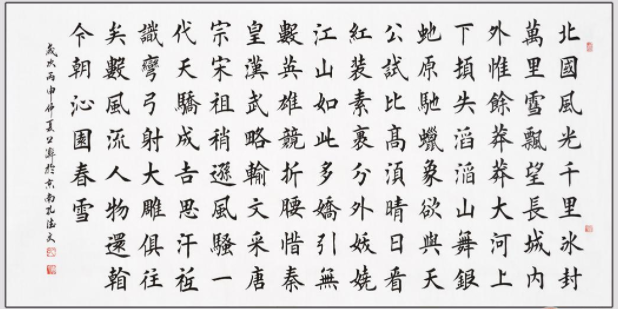 北國風光千里冰封
萬里雪飄望長城内
外惟餘莽莽大河上
下頓失滔滔山舞銀
虵原馳蠟象欲與天
公試比高湏晴日看
紅裝素裹分外妖嬈
江山如此多嬌引無
數英雄競折腰惜秦
皇漢武略輸文采唐
宗宋祖稍遜風騷一
代天驕成吉思汗祗
識彎弓射大雕俱往
矣數風流人物還
今朝沁園春雪
歲次丙申仲夏於京南孔德文